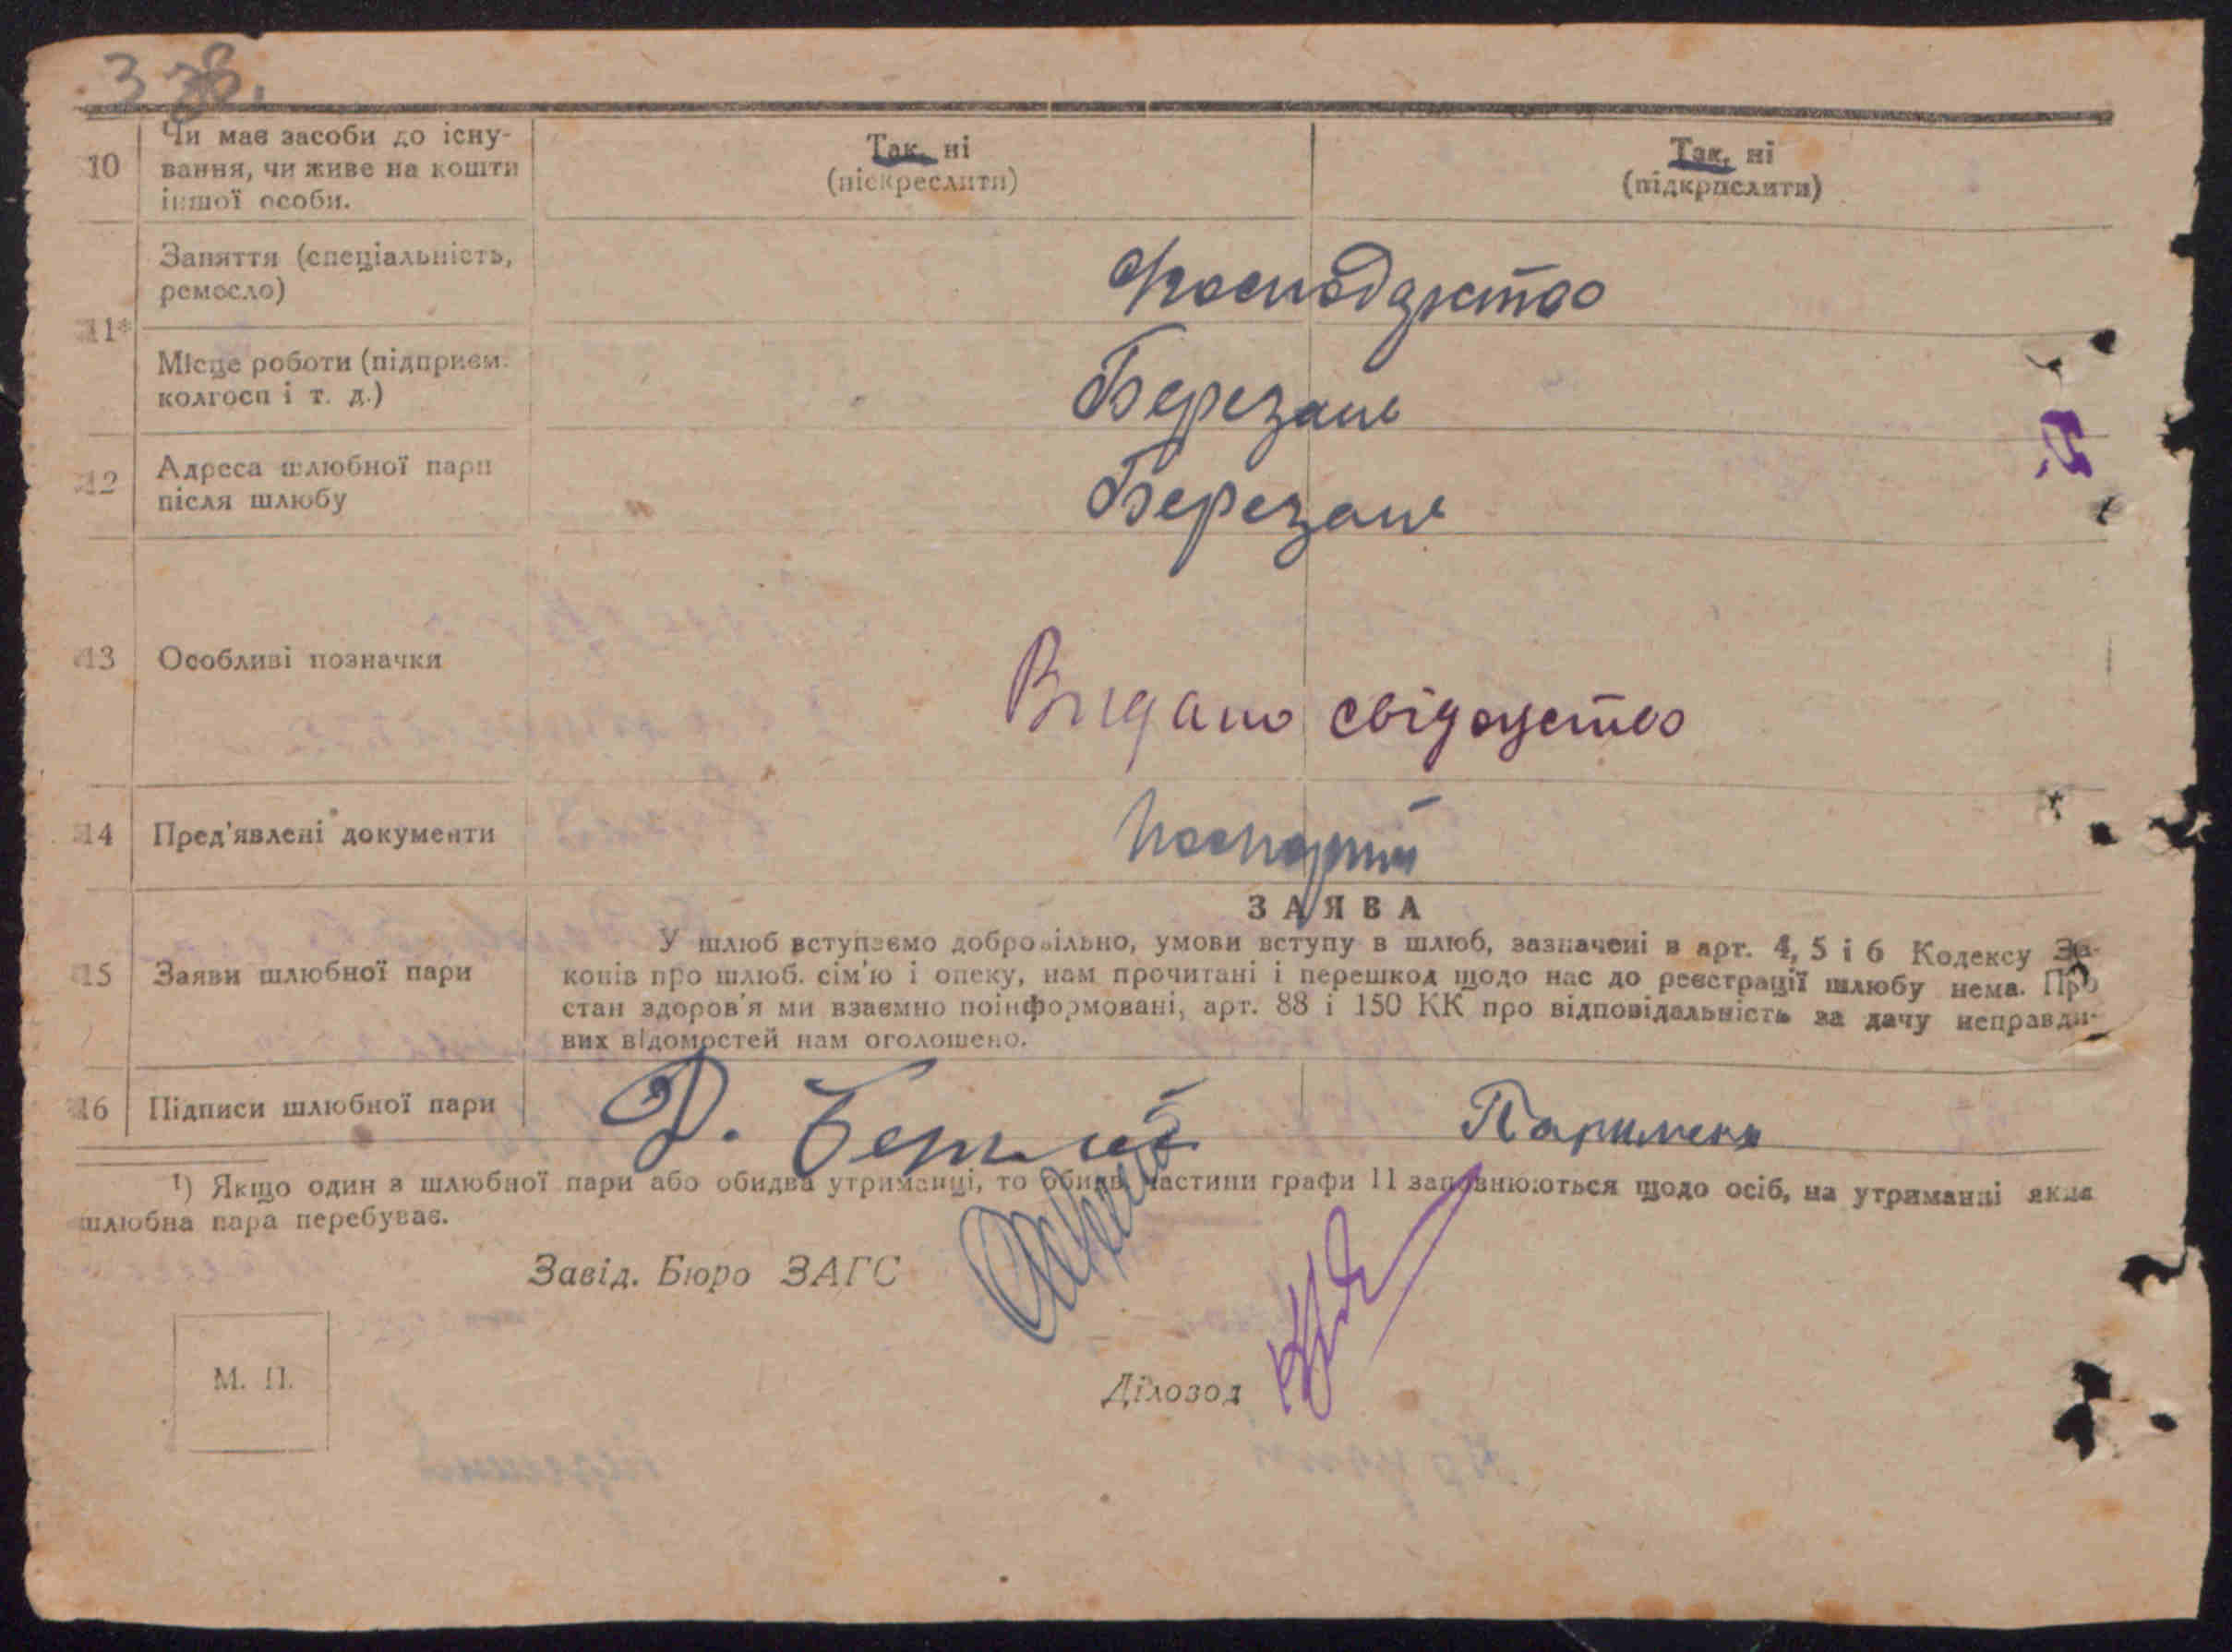 3 зв.
10
Чи має засоби до існу-
вання, чи живе на кошти
іншої особи.
Так, ні
(підкреслити)
Так, ні
(підкрислити)
11*
Заняття (спеціальність,
ремесло)
господарство
Місце роботи (підприєм.
колгосп і т. д.)
Березань
12
Адреса шлюбної пари
після шлюбу
Березань
13
Особливі позначки
Видано свідоцтво
14
Пред'явлені документи
паспорти
ЗАЯВА
15
Заяви шлюбної пари
У шлюб вступаємо добровільно, умови вступу в шлюб, зазначені в арт. 4, 5 і 6 Кодексу За-
конів про шлюб. сім'ю і опеку, нам прочитані і перешкод щодо нас до реєстрації шлюбу нема. Про
стан здоров'я ми взаємно поінформовані, арт. 88 і 150 КК про відповідальність за дачу неправди-
вих відомостей нам оголошено.
16
Підписи шлюбної пари
Д.
¹) Якщо один з шлюбної пари або обидва утриманці, то обидві частини графи 11 заповнюються щодо осіб, на утриманні яких
шлюбна пара перебуває.
Завід. Бюро ЗАГС
М. П.
Діловод